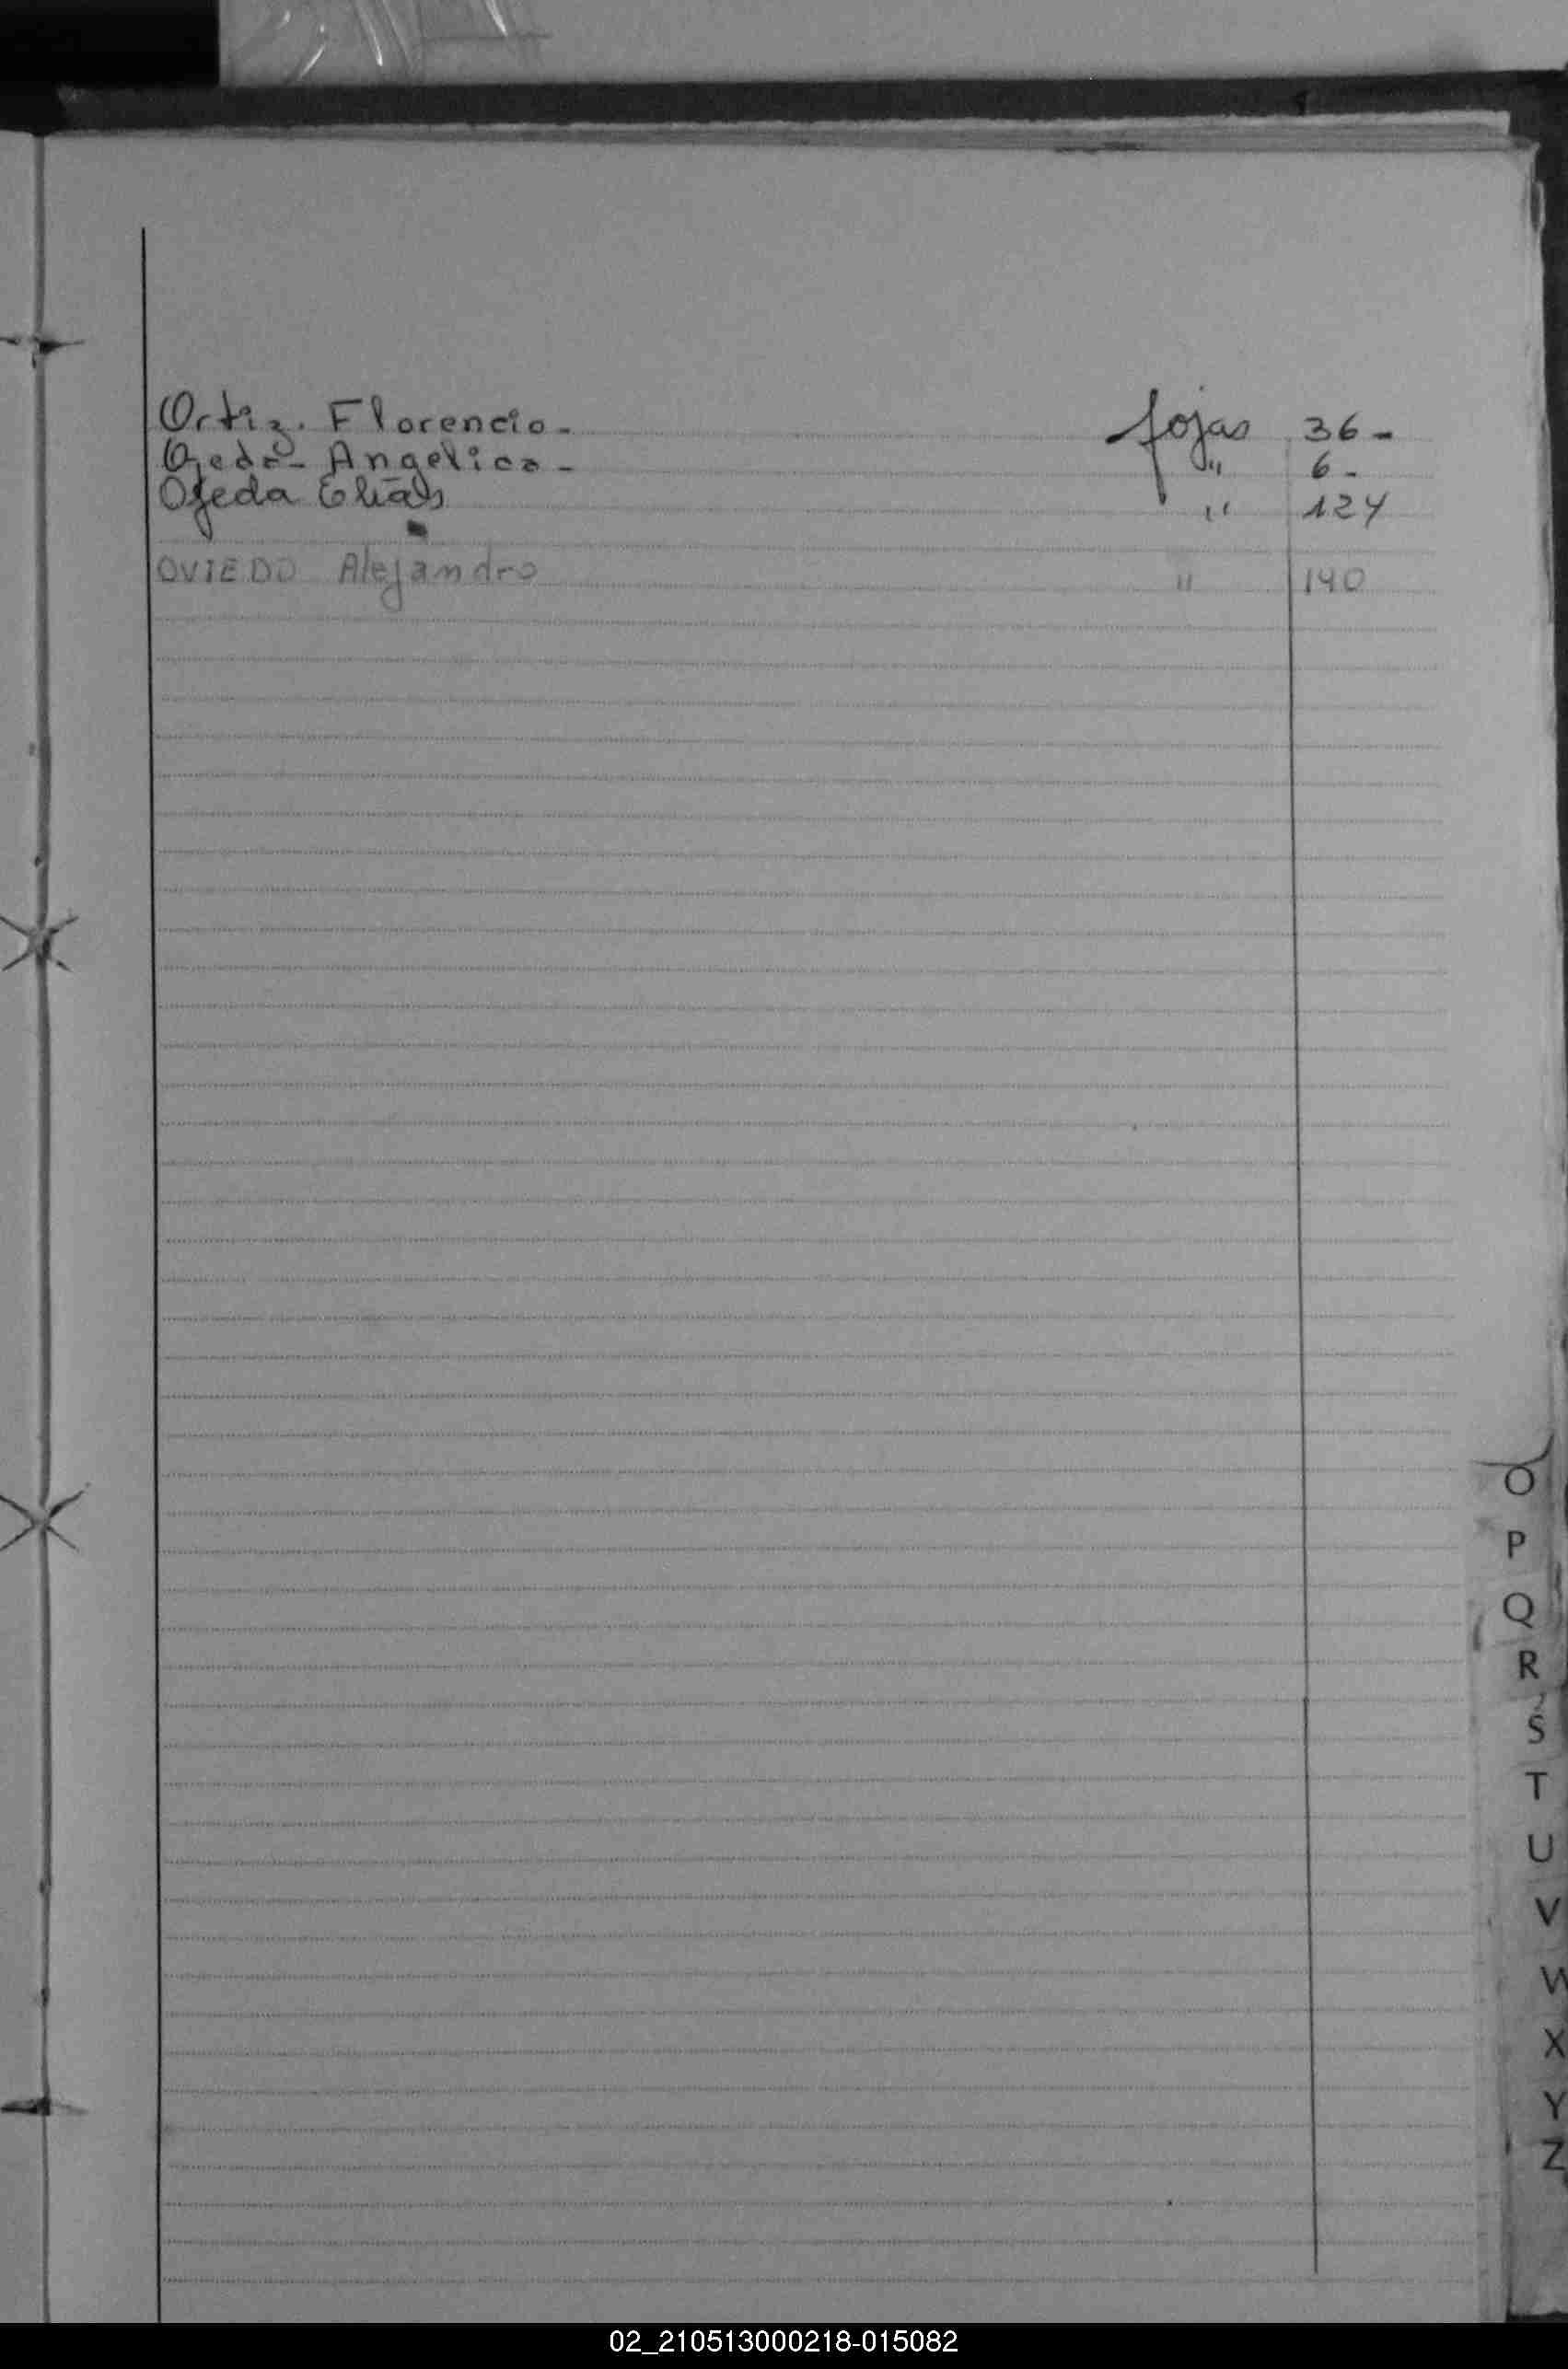 Ortiz. Florencio- fojas 36-
Ojeda- Angelica- " 6-
Ojeda Elías " 124
OVIEDO Alejandro " 140
O
P
Q
R
S
T
U
V
W
X
Y
Z
02_210513000218-015082